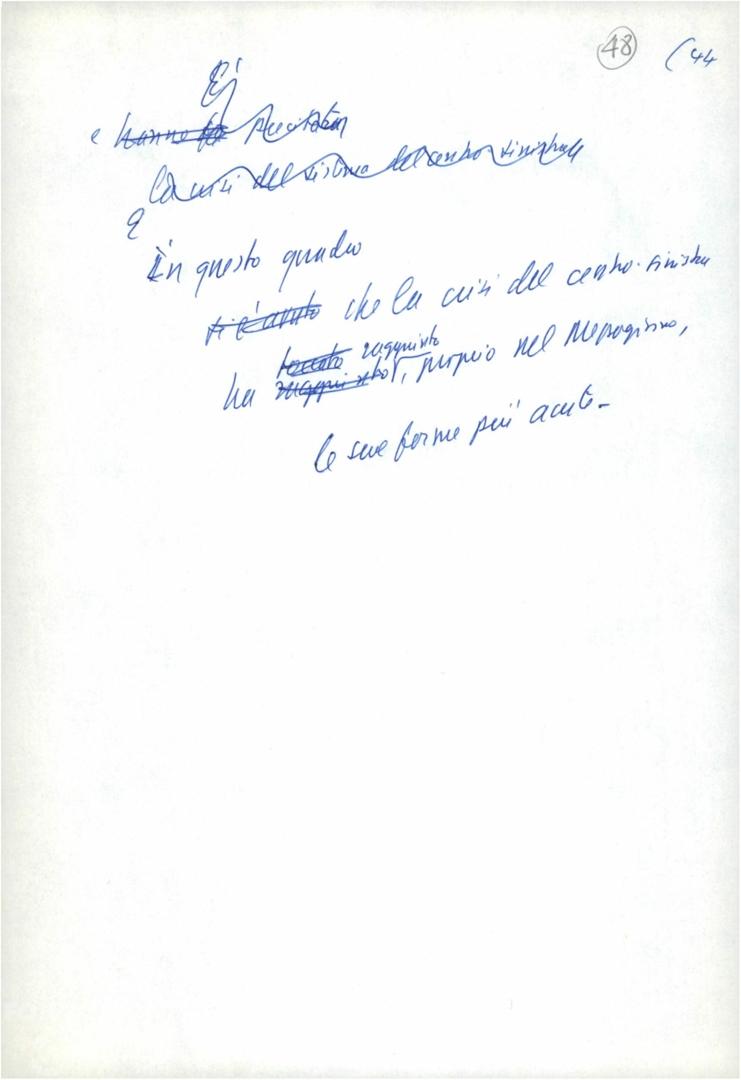 48 (44
È
e hanno precipitato
la crisi del sistema del centro-sinistra
È
in questo quadro
si è avuto che la crisi del centro-sinistra
toccato raggiunto
ha raggiunto, proprio nel Mezzogiorno,
le sue forme più acute-